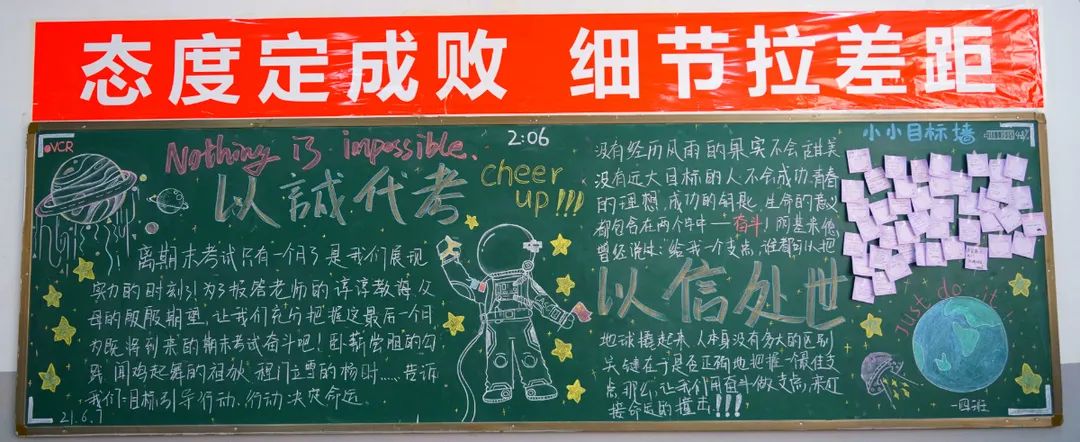 态度定成败 细节拉差距
VCR
Nothing is impossible.
2:06
小小目标墙
以誠代考
cheer
up!!!
离期末考试只有一个月了是我们展现
实力的时刻!为了报答老师的谆谆教诲,父
母的殷殷期望,让我们充分把握这最后一个月
为既将到来的期末考试奋斗吧!卧薪尝胆的勾
践,闻鸡起舞的祖狄,程门立雪的杨时……告诉
我们:目标引导行动,行动决定命运。
21.6.7
没有经历风雨的果实不会甜美
没有远大目标的人不会成功,青春
的理想,成功的钥匙,生命的意义
都包含在两个字中——奋斗!阿基米德
曾经说过:给我一个支点,谁都可以把
以信处世
地球撬起来,人本身没有多大的区别
关键在于是否正确地把握一个最佳支
点,那么,让我们用奋斗做支点,来迎
接命运的撞击!!!
Just do it!
一四班